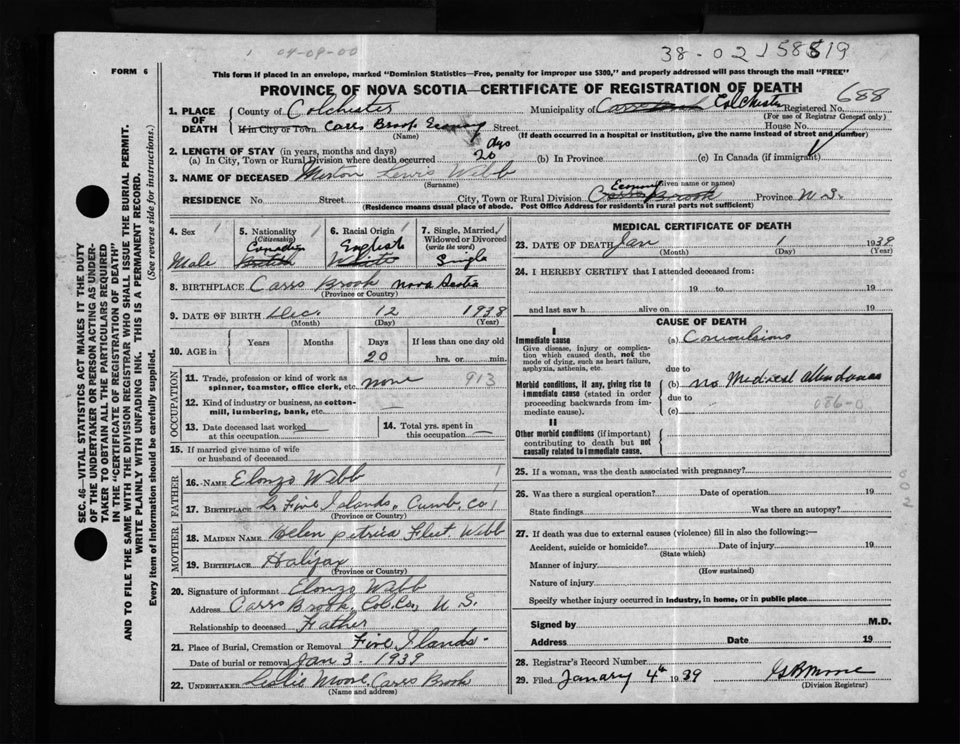 1 04-09-00
38-02158819
FORM 6
This form if placed in an envelope, marked "Dominion Statistics—Free, penalty for improper use $300," and properly addressed will pass through the mail "FREE"
PROVINCE OF NOVA SCOTIA—CERTIFICATE OF REGISTRATION OF DEATH
688
1. PLACE OF DEATH
County of Colchester Municipality of Colchester Registered No.
(For use of Registrar General only)
If in City or Town Carrs Brook Economy Street House No.
(Name) (If death occurred in a hospital or institution, give the name instead of street and number)
2. LENGTH OF STAY (in years, months and days)
(a) In City, Town or Rural Division where death occurred 20 dys (b) In Province (c) In Canada (if immigrant)
3. NAME OF DECEASED Lewis Webb
(Surname) (Given name or names)
RESIDENCE No. Street City, Town or Rural Division Economy Carrs Brook Province N.S.
(Residence means usual place of abode. Post Office Address for residents in rural parts not sufficient)
4. Sex Male
5. Nationality (Citizenship) Canadian British
6. Racial Origin English White
7. Single, Married, Widowed or Divorced (write the word) Single
8. BIRTHPLACE Carrs Brook Nova Scotia
(Province or Country)
9. DATE OF BIRTH Dec. 12 1938
(Month) (Day) (Year)
10. AGE in Years Months Days 20 If less than one day old hrs. or min.
OCCUPATION
11. Trade, profession or kind of work as spinner, teamster, office clerk, etc. none 913
12. Kind of industry or business, as cotton-mill, lumbering, bank, etc.
13. Date deceased last worked at this occupation
14. Total yrs. spent in this occupation
15. If married give name of wife or husband of deceased
FATHER
16. NAME Elonzo Webb
17. BIRTHPLACE Lr Five Islands, Cumb. Co
(Province or Country)
MOTHER
18. MAIDEN NAME Helen Fleet Webb
19. BIRTHPLACE Halifax
(Province or Country)
20. Signature of informant Elonzo Webb
Address Carrs Brook, Col. Co., N.S.
Relationship to deceased Father
21. Place of Burial, Cremation or Removal Five Islands
Date of burial or removal Jan 3. 1939
22. UNDERTAKER Leslie Moore, Carrs Brook
(Name and address)
MEDICAL CERTIFICATE OF DEATH
23. DATE OF DEATH Jan 1 1939
(Month) (Day) (Year)
24. I HEREBY CERTIFY that I attended deceased from:
19 to 19
and last saw h alive on 19
CAUSE OF DEATH
I
Immediate cause
Give disease, injury or complication which caused death, not the mode of dying, such as heart failure, asphyxia, asthenia, etc.
(a) Convulsions
due to
Morbid conditions, if any, giving rise to immediate cause (stated in order proceeding backwards from immediate cause).
(b) No Medical attendance
due to
086-0
(c)
II
Other morbid conditions (if important) contributing to death but not causally related to immediate cause.
25. If a woman, was the death associated with pregnancy?
26. Was there a surgical operation? Date of operation 19
State findings Was there an autopsy?
27. If death was due to external causes (violence) fill in also the following:—
Accident, suicide or homicide? Date of injury 19
(State which)
Manner of injury
(How sustained)
Nature of injury
Specify whether injury occurred in industry, in home, or in public place
Signed by M.D.
Address Date 19
28. Registrar's Record Number
29. Filed January 4th 1939
(Division Registrar)
SEC. 46—VITAL STATISTICS ACT MAKES IT THE DUTY
OF THE UNDERTAKER OR PERSON ACTING AS UNDERTAKER TO OBTAIN ALL THE PARTICULARS REQUIRED
IN THE "CERTIFICATE OF REGISTRATION OF DEATH"
AND TO FILE THE SAME WITH THE DIVISION REGISTRAR WHO SHALL ISSUE THE BURIAL PERMIT.
WRITE PLAINLY WITH UNFADING INK. THIS IS A PERMANENT RECORD.
Every item of Information should be carefully supplied. (See reverse side for instructions.)